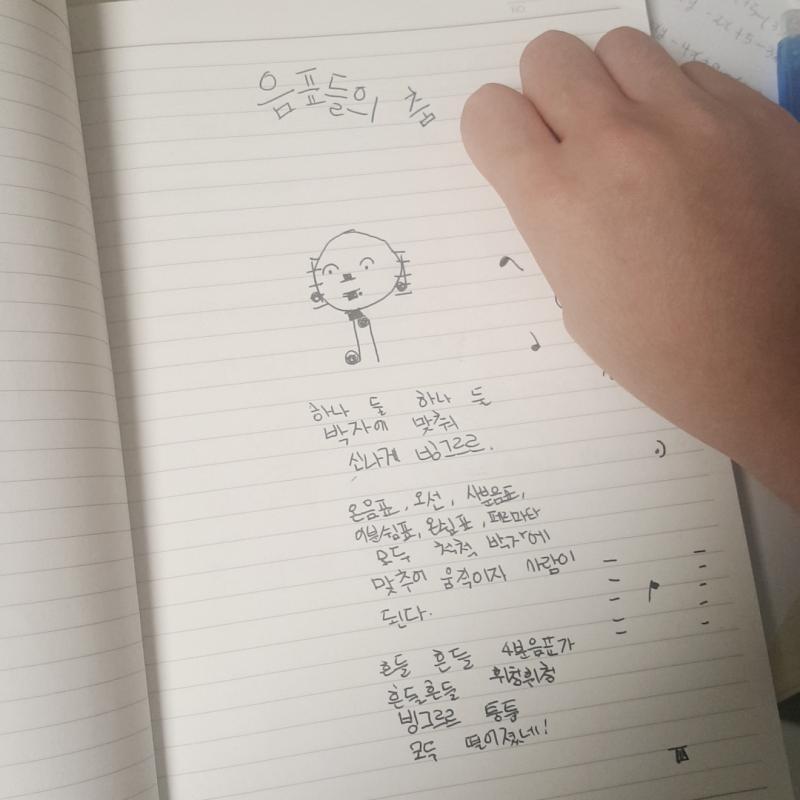 음표들의 춤
하나 둘 하나 둘
박자에 맞춰
신나게 빙그르르.
온음표, 오선, 사분음표,
이분쉼표, 온쉼표, 페르마타
모두 척척 박자에
맞추어 움직이자 사람이
된다.
흔들 흔들 4분음표가
흔들흔들 휘청휘청
빙그르르 통통
모두 떨어졌네!